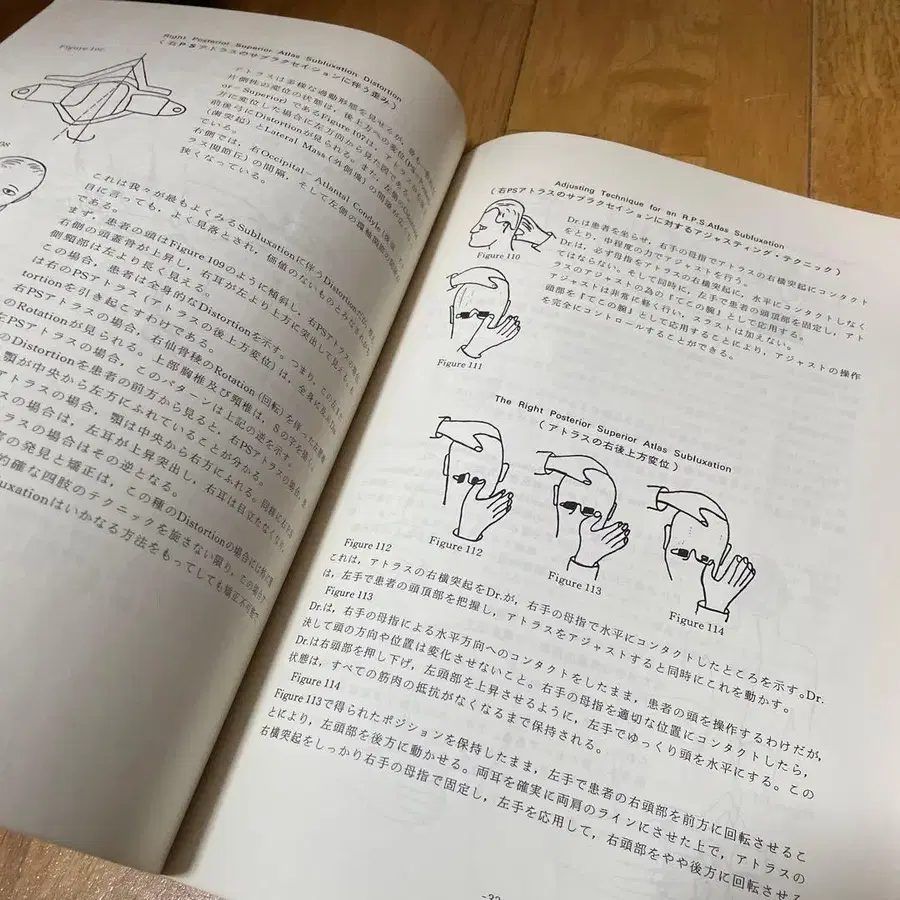 Right Posterior Superior Atlas Subluxation Distortion
（右PSアトラスのサブラクセイションに伴う歪み）
アトラスは多様な過動形態を見せるが、最も
片側性の変位の状態は、後上方への変位
or－Superior）であるFigure 107は、アトラスが
方に変位した場合に左方向から見た図である。
前後弓にDistortionが見られる。また、左側の
（歯突起）とLateral Mass（外側塊）の間隔が
右側では、右Occipital－Atlantal Condyle
ス関節丘）の間隔、そして左側の環軸関節の間隔
狭くなっている。
これは我々が最もよくみるSubluxationに伴うDistortion
目に言っても、よく見落とされ、価値のないものとみな
である。
まず、患者の頭はFigure 109のように傾斜し、右PSアトラス
右側の頭蓋骨が上昇し、右耳が左より上方に突出して見
側頸部は左より長く見える。
この場合、患者は全身的なDistortionを示す。つまり、この
は右のPSアトラス（アトラスの後上方変位）は、全身に
tortionを引き起こすわけである。
右PSアトラスの場合、右仙骨稜のRotation（回転）を伴った
のRotationが見られる。上部胸椎及び頸椎は、Sの字を描
PSアトラスの場合、このパターンは上記の逆を示す。
のDistortionを患者の前方から見ると、右PSアトラスの場合
顎が中央から左方にふれていることが分かる。
アトラスの場合、顎は中央から右方にふれる。同様に
の場合は、左耳が上昇突出し、右耳は目立たなくなり、
ラスの場合はその逆となる。
の発見と矯正は、この種のDistortionの場合には特に
的確な四肢のテクニックを施さない限り、この場合
uxationはいかなる方法をもってしても矯正不可能
Adjusting Technique for an R.P.S.Atlas Subluxation
（右PSアトラスのサブラクセイションに対するアジャスティング・テクニック）
Dr.は患者を坐らせ、右手の母指でアトラスの右横突起にコンタクト
をとり、中程度の力でアジャストを行う。
Dr.は、必ず母指をアトラスの右横突起に、水平にコンタクトしなく
てはならない。そして同時に、左手で患者の頭頂部を固定し、アト
ラスのアジャストの為の『てこの腕』として応用する。
アジャストは非常に軽く行い、スラストは加えない。
頭部を『てこの腕』として応用することにより、アジャストの操作
を完全にコントロールすることができる。
Figure 110
Figure 111
The Right Posterior Superior Atlas Subluxation
（アトラスの右後上方変位）
Figure 112
Figure 113
Figure 114
Figure 112
これは、アトラスの右横突起をDr.が、右手の母指で水平にコンタクトしたところを示す。Dr.
は、左手で患者の頭頂部を把握し、アトラスをアジャストすると同時にこれを動かす。
Figure 113
Dr.は、右手の母指による水平方向へのコンタクトをしたまま、患者の頭を操作するわけだが、
決して頭の方向や位置は変化させないこと。右手の母指を適切な位置にコンタクトしたら、
Dr.は右頭部を押し下げ、左頭部を上昇させるように、左手でゆっくり頭を水平にする。この
状態は、すべての筋肉の抵抗がなくなるまで保持される。
Figure 114
Figure 113で得られたポジションを保持したまま、左手で患者の右頭部を前方に回転させるこ
とにより、左頭部を後方に動かせる。両耳を確実に両肩のラインにさせた上で、アトラスの
右横突起をしっかり右手の母指で固定し、左手を応用して、右頭部をやや後方に回転させる
-32